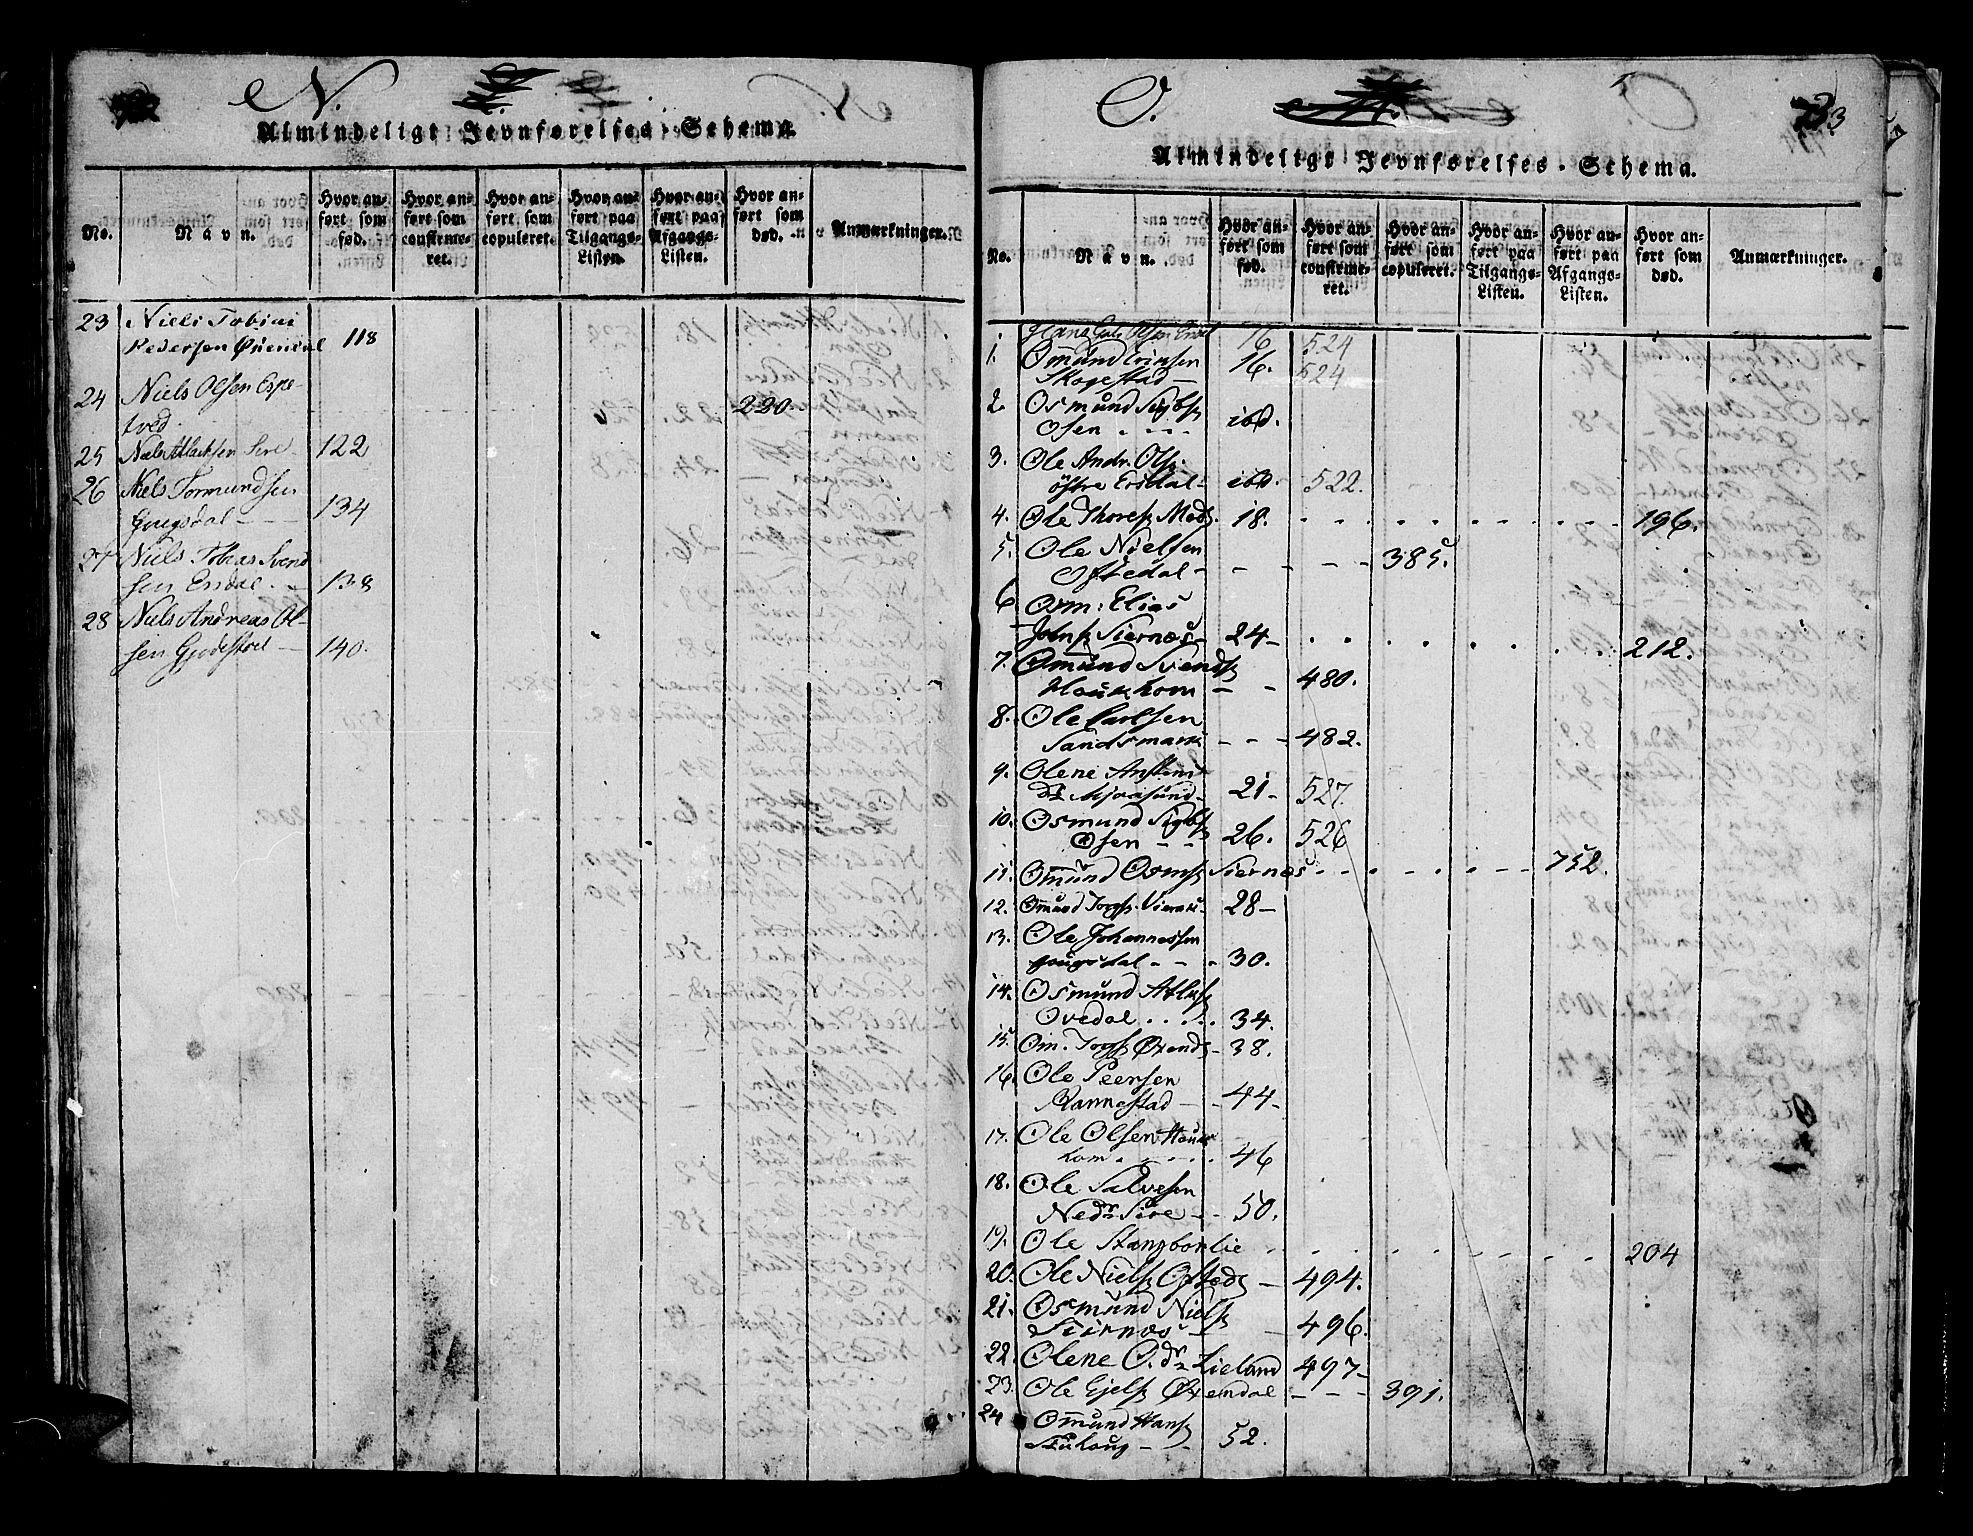 N.
Almindeligt Jevnførelses-Schema.
No.
Navn.
Hvor anført som fød.
Hvor anført som confirmeret.
Hvor anført som copuleret.
Hvor anført paa Tilgangs-Listen.
Hvor anført paa Afgangs-Listen.
Hvor anført som død.
Anmærkninger.
23 Niels Tobias
Pedersen 118
24 Niels Olsen Espe-
tved 220.
25 Niels Atlachsen Sire 122
26 Niels Tormundsen
Gyugsdal - - - 134
27 Niels Tobias Svend
sen Ersdal - 138
28 Niels Andreas Ol-
sen Gjedestoel - 140.
O.
33
Almindeligt Jevnførelses-Schema.
No.
Navn.
Hvor anført som fød.
Hvor anført som confirmeret.
Hvor anført som copuleret.
Hvor anført paa Tilgangs-Listen.
Hvor anført paa Afgangs-Listen.
Hvor anført som død.
Anmærkninger.
16 524
1. Omund
Skogestad - 16. 524
2. Osmund Sigbs
Osen . . . . ibd.
3. Ole Andr. Ols:
östre Ersdal - ibd. 522.
4. Ole Thores Mods. 18. 196.
5. Ole Nielsen
Oftedal - - - - - 385.
6 Osm: Elias
Johns Siernæs - 24 - 212.
7. Omund Svends
Houkhom - - 480.
8. Ole Carlsen
Sandsmark - - - 482.
9. Olene
dr Mjaasund - 21 - 527.
10. Osmund Sigbs
Osen - - 26. 526
11. Omund Osms Siernæs . . . 752.
12. Omund Torgs. 28 -
13. Ole Johannessen
Gougsdal - - - 30.
14. Osmund Atlaks
Ovedal . . . . . 34.
15. Om. Torgs Øxends - 38.
16. Ole Peersen
Rannestad - - 44 -
17. Ole Olsen Houk
hom . . . . . 46
18. Ole Salvesen
Nedr Sire - - 50.
19. Ole Stangborlie 204
20. Ole Niels Ofteds - 494.
21. Osmund Niels
Siernæs - - 496.
22. Olene O. dr Lieland 497 -
23. Ole Gjels Øxendal - - - 391.
24 Omund Hans
- - 52.